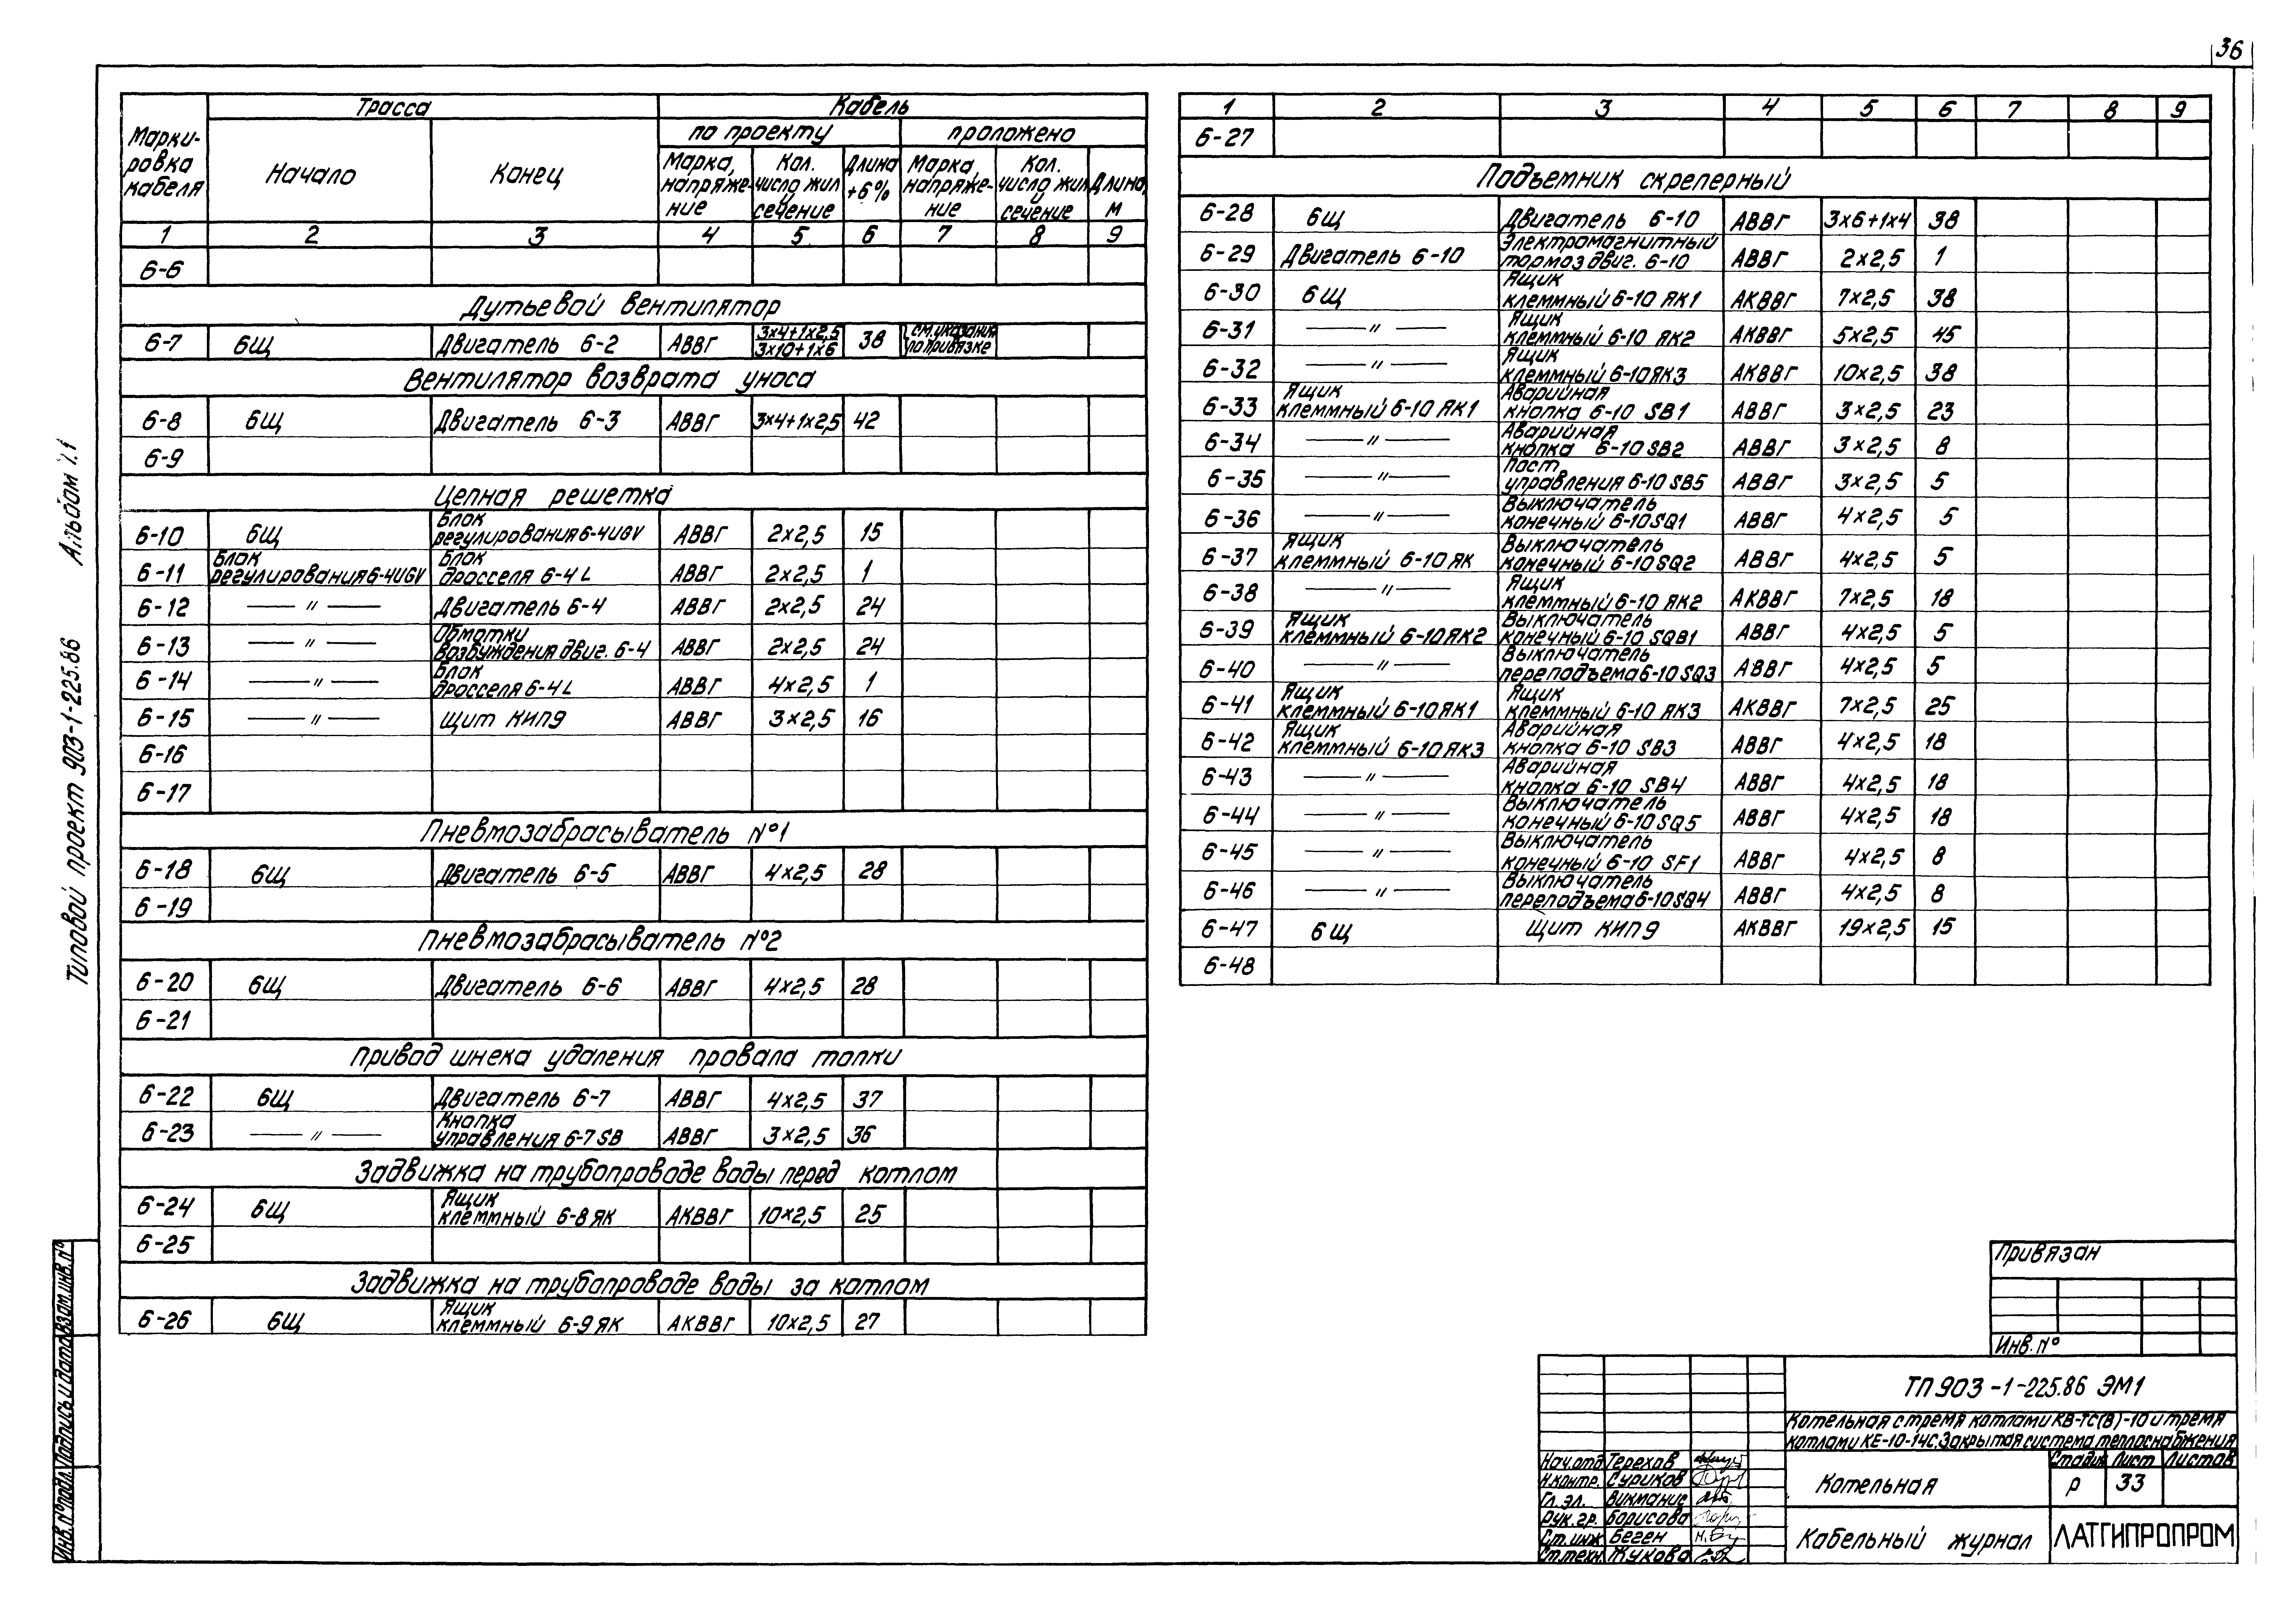 36
Трасса Кабель
Марки-
ровка
кабеля
Начало Конец
по проекту проложено
Марка,
напряже-
ние
Кол.
число жил
и
сечение
Длина
+6%
Марка,
напряже-
ние
Кол.
число жил
и
сечение
Длина,
м
1 2 3 4 5 6 7 8 9
6-6
Дутьевой вентилятор
6-7 6Щ Двигатель 6-2 АВВГ 3×4+1×2,5 38 см. указания
3×10+1×6 по привязке
Вентилятор возврата уноса
6-8 6Щ Двигатель 6-3 АВВГ 3×4+1×2,5 42
6-9
Цепная решетка
6-10 6Щ Блок
регулирования 6-4UGV АВВГ 2×2,5 15
6-11 Блок
регулирования 6-4UGV Блок
дросселя 6-4L АВВГ 2×2,5 1
6-12 —〃— Двигатель 6-4 АВВГ 2×2,5 24
6-13 —〃— Обмотки
возбуждения двиг. 6-4 АВВГ 2×2,5 24
6-14 —〃— Блок
дросселя 6-4L АВВГ 4×2,5 1
6-15 —〃— Щит КИП9 АВВГ 3×2,5 16
6-16
6-17
Пневмозабрасыватель №1
6-18 6Щ Двигатель 6-5 АВВГ 4×2,5 28
6-19
Пневмозабрасыватель №2
6-20 6Щ Двигатель 6-6 АВВГ 4×2,5 28
6-21
Привод шнека удаления провала топки
6-22 6Щ Двигатель 6-7 АВВГ 4×2,5 37
6-23 —〃— Кнопка
управления 6-7 SB АВВГ 3×2,5 36
Задвижка на трубопроводе воды перед котлом
6-24 6Щ Ящик
клеммный 6-8 ЯК АКВВГ 10×2,5 25
6-25
Задвижка на трубопроводе воды за котлом
6-26 6Щ Ящик
клеммный 6-9 ЯК АКВВГ 10×2,5 27
1 2 3 4 5 6 7 8 9
6-27
Подъемник скреперный
6-28 6Щ Двигатель 6-10 АВВГ 3×6+1×4 38
6-29 Двигатель 6-10 Электромагнитный
тормоз двиг. 6-10 АВВГ 2×2,5 1
6-30 6Щ Ящик
клеммный 6-10 ЯК1 АКВВГ 7×2,5 38
6-31 —〃— Ящик
клеммный 6-10 ЯК2 АКВВГ 5×2,5 45
6-32 —〃— Ящик
клеммный 6-10 ЯК3 АКВВГ 10×2,5 38
6-33 Ящик
клеммный 6-10 ЯК1 Аварийная
кнопка 6-10 SB1 АВВГ 3×2,5 23
6-34 —〃— Аварийная
кнопка 6-10 SB2 АВВГ 3×2,5 8
6-35 —〃— Пост
управления 6-10 SB5 АВВГ 3×2,5 5
6-36 —〃— Выключатель
конечный 6-10 SQ1 АВВГ 4×2,5 5
6-37 Ящик
клеммный 6-10 ЯК Выключатель
конечный 6-10 SQ2 АВВГ 4×2,5 5
6-38 —〃— Ящик
клеммный 6-10 ЯК2 АКВВГ 7×2,5 18
6-39 Ящик
клеммный 6-10 ЯК2 Выключатель
конечный 6-10 SQB1 АВВГ 4×2,5 5
6-40 —〃— Выключатель
переподъема 6-10 SQ3 АВВГ 4×2,5 5
6-41 Ящик
клеммный 6-10 ЯК1 Ящик
клеммный 6-10 ЯК3 АКВВГ 7×2,5 25
6-42 Ящик
клеммный 6-10 ЯК3 Аварийная
кнопка 6-10 SB3 АВВГ 4×2,5 18
6-43 —〃— Аварийная
кнопка 6-10 SB4 АВВГ 4×2,5 18
6-44 —〃— Выключатель
конечный 6-10 SQ5 АВВГ 4×2,5 18
6-45 —〃— Выключатель
конечный 6-10 SF1 АВВГ 4×2,5 8
6-46 —〃— Выключатель
переподъема 6-10 SQ4 АВВГ 4×2,5 8
6-47 6Щ Щит КИП9 АКВВГ 19×2,5 15
6-48
Типовой проект 903-1-225.86 Альбом 7.1
Инв. № подл. Подпись и дата Взам. инв. №
Привязан
Инв. №
ТП 903-1-225.86 ЭМ1
Котельная с тремя котлами КВ-ТС(В)-10 и тремя
котлами КЕ-10-14С. Закрытая система теплоснабжения
Нач. отд. Терехов
Н. контр. Суриков
Гл. эл. Викманис
Рук. гр. Борисова
Ст. инж. Беген
Ст. техн. Жукова
Котельная
Стадия Лист Листов
Р 33
Кабельный журнал
ЛАТГИПРОПРОМ